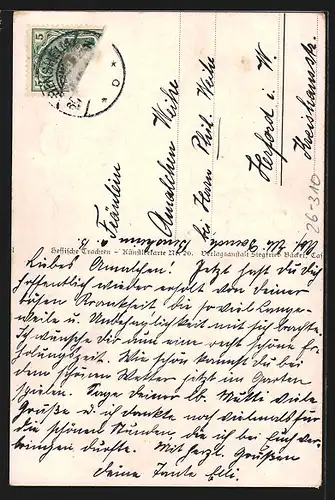 5
* D *
Fräulein
Amalchen Weihe
bei Herrn Phil. Weihe
Herford i. W.
Kreishamstr.
26-310
Hessische Trachten – Künstlerkarte Nr. 26. Verlagsanstalt Siegfried Bäcker, Cas
Liebes Amalchen! Jetzt hast du dich
hoffentlich wieder erholt von deiner
bösen Krankheit die so viel Lange-
weile u. Unbehaglichkeit mit sich brachte.
Ich wünsche dir nun eine recht schöne Er-
holungszeit. Wie schön kannst du bei
dem schönen Wetter jetzt im Garten
spielen. Sage deiner lb. Mutti viele
Grüße u. ich dankte noch vielmals für
die schönen Stunden, die ich bei Euch ver-
bringen durfte. Mit herzl. Grüßen
deine Tante Elli.